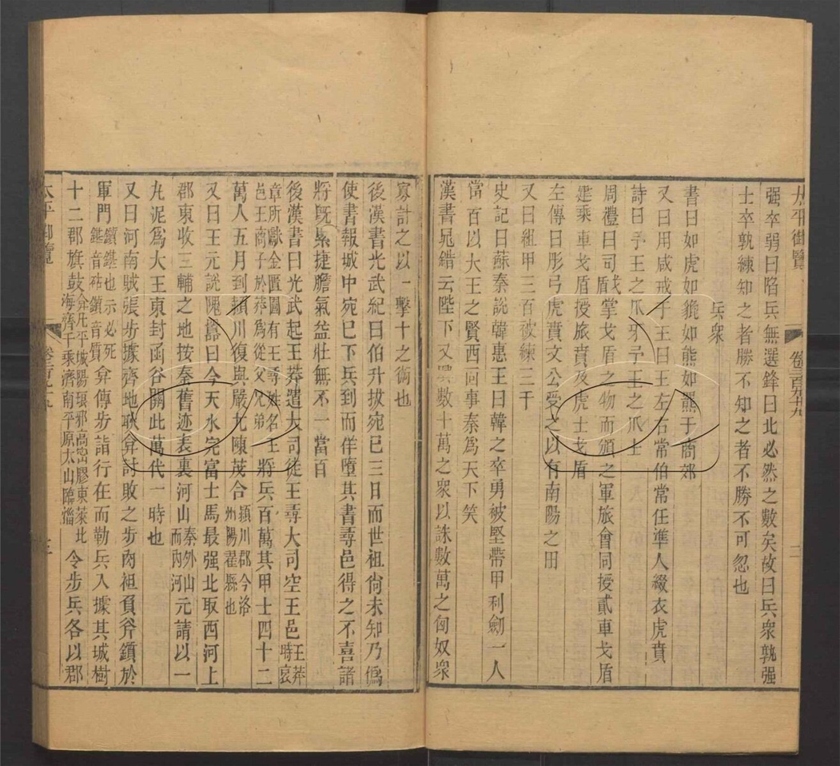 太平御覽 卷二百九十九 二
强卒弱曰陷兵無選鋒曰北必然之數矣故曰兵衆孰强
士卒孰練知之者勝不知之者不勝不可忽也
兵衆
書曰如虎如貔如熊如羆于商郊
又曰用咸戒于王曰王左右常伯常任準人綴衣虎賁
詩曰予王之爪牙予王之爪士
周禮曰司戈盾掌戈盾之物而頒之軍旅會同授貳車戈盾
建乘車戈盾授旅賁及虎士戈盾
左傳曰彤弓虎賁文公受之以有南陽之田
又曰組甲三百被練三千
史記曰蘇秦說韓惠王曰韓之卒勇被堅帶甲利劒一人
當百以大王之賢西面事秦為天下笑
漢書晁錯云陛下又興數十萬之衆以誅數萬之匈奴衆
寡計之以一擊十之術也
後漢書光武紀曰伯升拔宛已三日而世祖尙未知乃僞
使書報城中宛已下兵到而佯墮其書尋邑得之不喜諸
將旣累捷膽氣益壯無不一當百
後漢書曰光武起王莽遣大司徒王尋大司空王邑王莽時哀
章所獻金匱圖有王尋姓名王
邑王商子於莽為從父兄弟將兵百萬其甲士四十二
萬人五月到頴川復與嚴尤陳茂合頴川郡今洛
州陽翟縣也
又曰王元說隗囂曰今天水完富士馬最强北取西河上
郡東收三輔之地按秦舊迹表裏河山秦外山
而內河元請以一
丸泥爲大王東封函谷關此萬代一時也
又曰河南賊張步據齊地耿弇討敗之步肉袒負斧鑕於
軍門鑕鍖也示必死
鍖音砧鑕音質弇傳步詣行在而勒兵入據其城樹
十二郡旗鼓令步兵各以郡
太平御覽 三